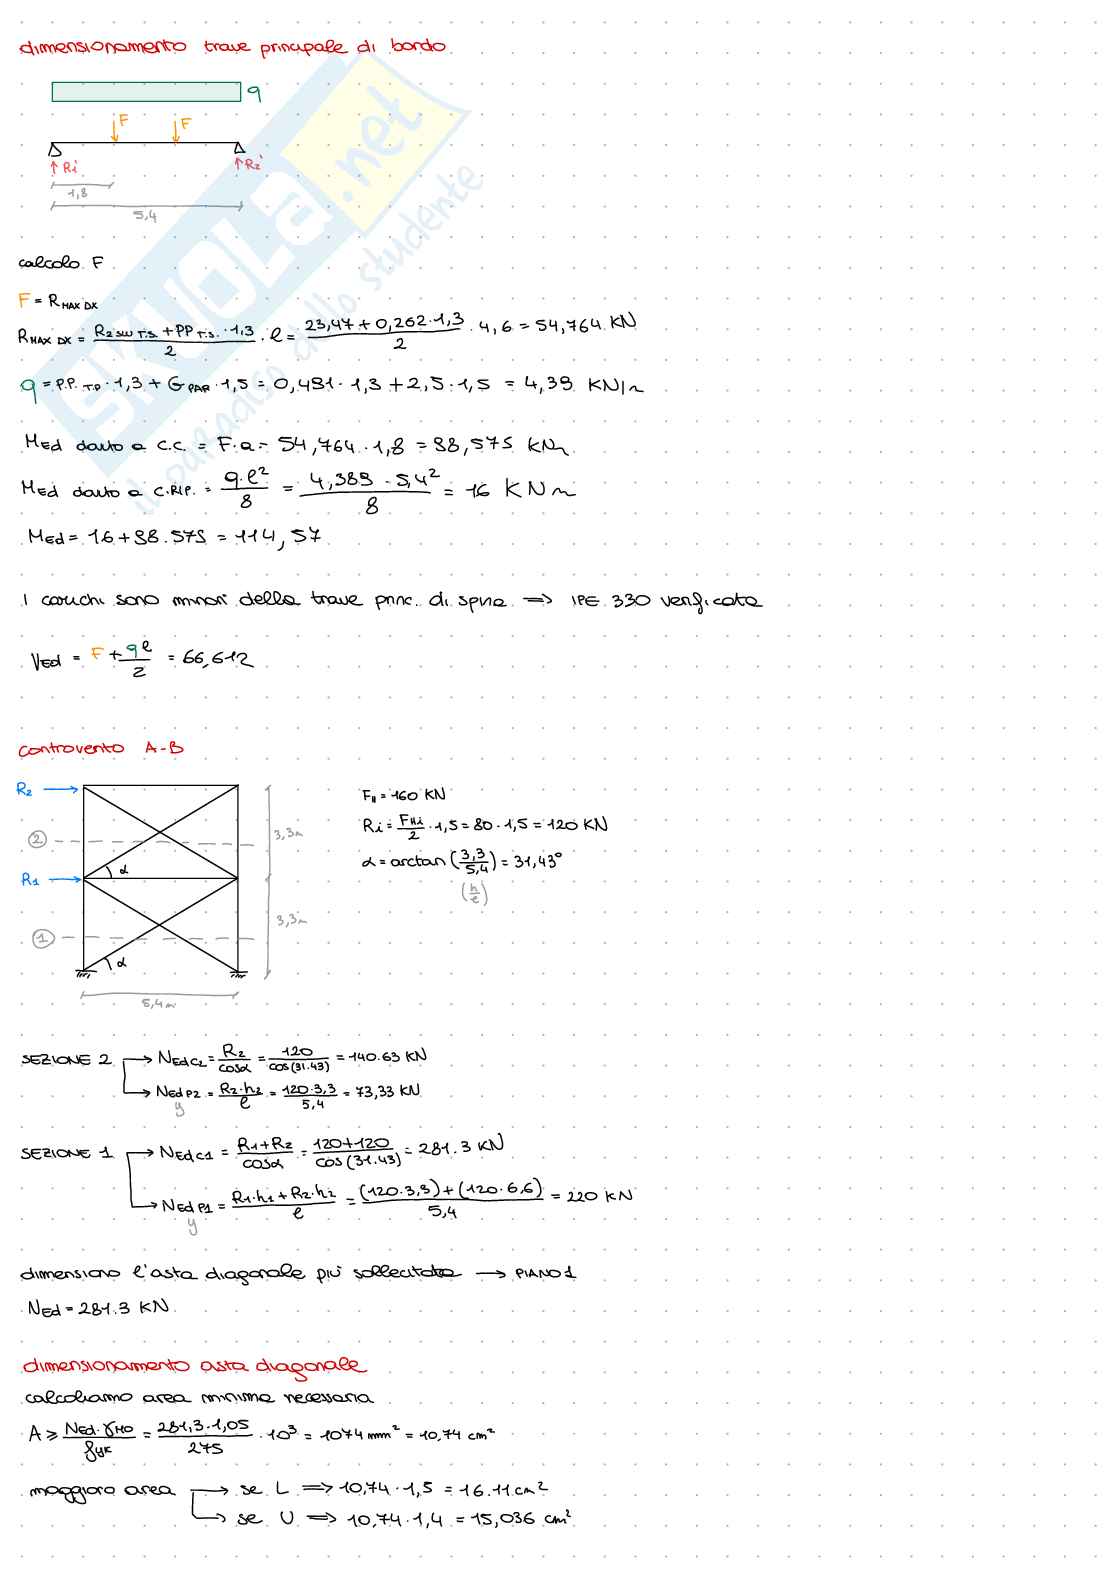 dimensionamento trave principale di bordo
q
F F
R1 R2
1,8
5,4
calcolo F
F = R MAX DX
R MAX DX = (R2 SW T.S. + PP T.S. · 1,3)/2 · l = (23,47 + 0,262 · 1,3)/2 · 4,6 = 54,764 KN
q = P.P. T.P · 1,3 + G PAR · 1,5 = 0,491 · 1,3 + 2,5 · 1,5 = 4,39 KN/m
MEd dovuto a C.C. = F·a = 54,764 · 1,8 = 98,575 KNm
MEd dovuto a C.RIP. = q·l²/8 = 4,389 · 5,4²/8 = 16 KNm
MEd = 16 + 98.575 = 114,57
I carichi sono minori della trave princ. di spina ⇒ IPE 330 verificata
VEd = F + ql/2 = 66,612
controvento A-B
R2
2
α
R1
1
α
3,3m
3,3m
5,4m
FH = 160 KN
Ri = FHi/2 · 1,5 = 80 · 1,5 = 120 KN
α = arctan (3,3/5,4) = 31,43°
(h/l)
SEZIONE 2 → NEdC2 = R2/cosα = 120/cos(31.43) = 140.63 KN
→ NEd P2 = R2·h2/l = 120·3,3/5,4 = 73,33 KN
y
SEZIONE 1 → NEdC1 = R1+R2/cosα = 120+120/cos(31.43) = 281.3 KN
→ NEd P1 = R1·h1+R2·h2/l = (120·3,3)+(120·6,6)/5,4 = 220 KN
y
dimensiono l'asta diagonale più sollecitata → PIANO 1
NEd = 281.3 KN
dimensionamento asta diagonale
calcoliamo area minima necessaria
A ≥ NEd·γM0/fyk = 281,3·1,05/275 · 10³ = 1074 mm² = 10,74 cm²
maggioro area → se L ⇒ 10,74 · 1,5 = 16.11 cm²
→ se U ⇒ 10,74 · 1,4 = 15,036 cm²
SKUOLA.net
il paradiso dello studente